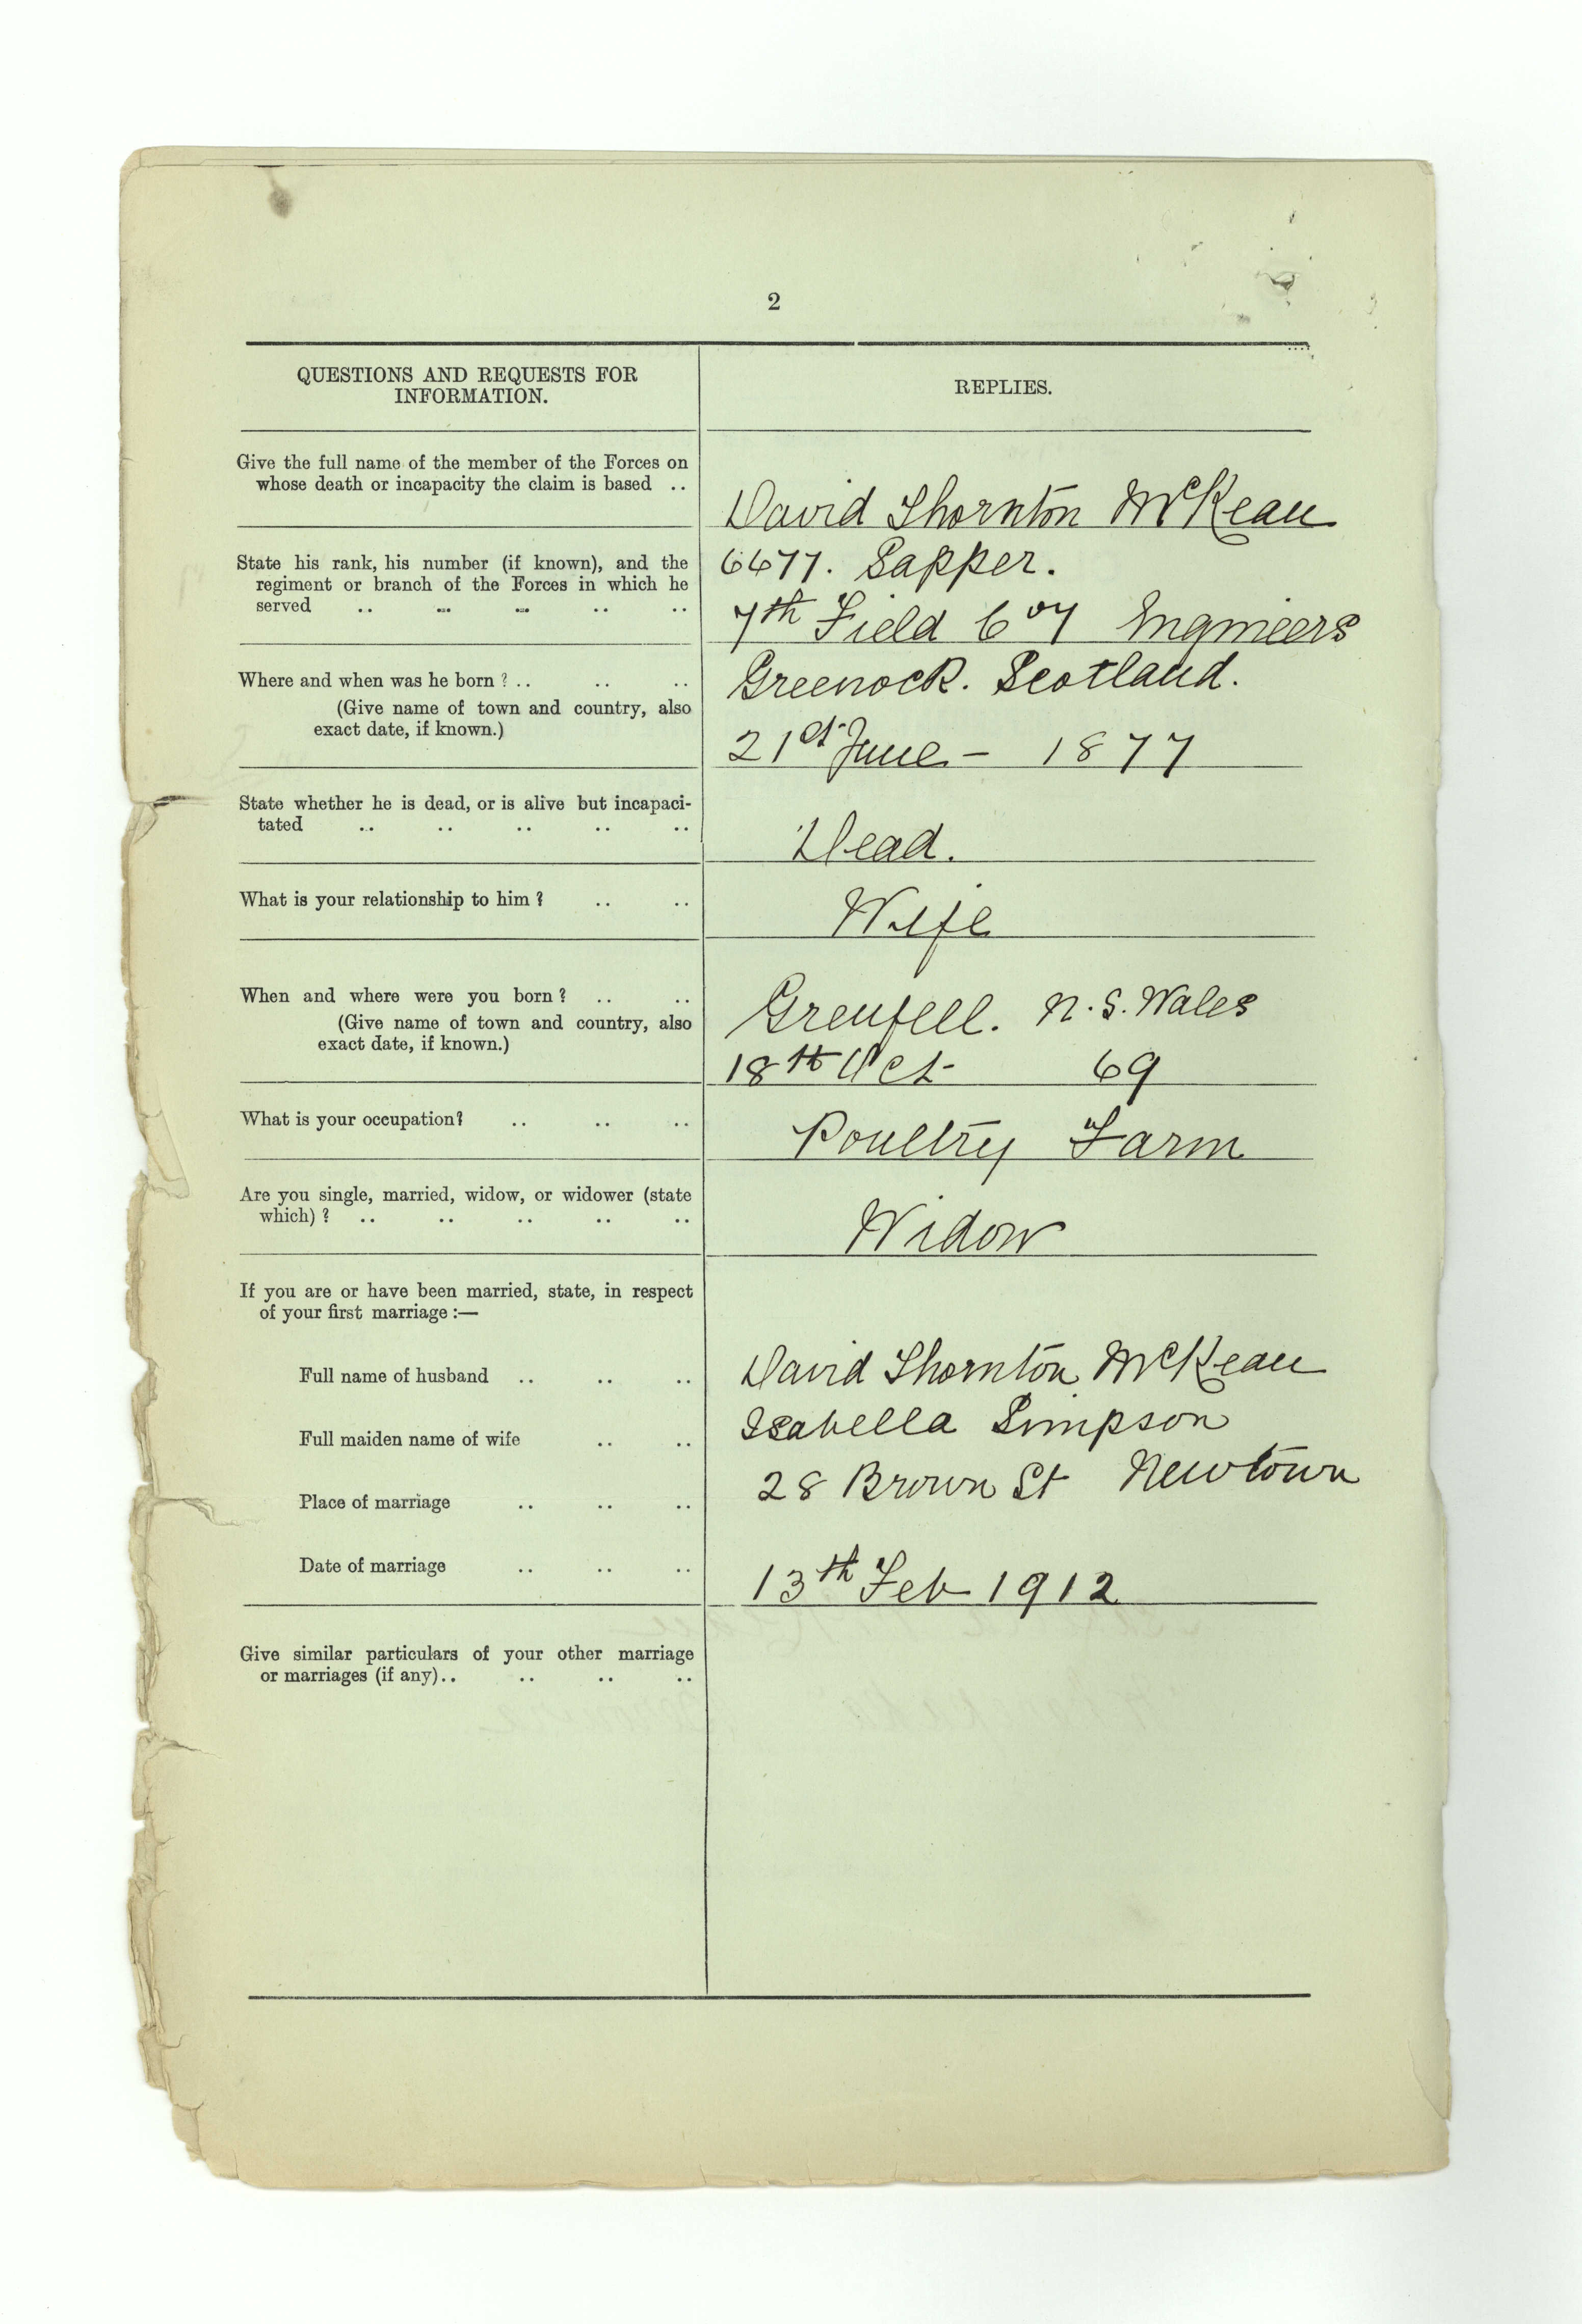 2
QUESTIONS AND REQUESTS FOR
INFORMATION.
REPLIES.
Give the full name of the member of the Forces on
whose death or incapacity the claim is based ..
David Thornton McKean
State his rank, his number (if known), and the
regiment or branch of the Forces in which he
served .. .. .. .. ..
6477. Sapper.
7th Field Coy Engineers
Where and when was he born ? .. .. ..
(Give name of town and country, also
exact date, if known.)
Greenock. Scotland.
21st June - 1877
State whether he is dead, or is alive but incapaci-
tated .. .. .. .. ..
Dead.
What is your relationship to him ? .. ..
Wife
When and where were you born ? .. ..
(Give name of town and country, also
exact date, if known.)
Grenfell. N.S. Wales
18th Oct- 69
What is your occupation? .. .. ..
Poultry Farm
Are you single, married, widow, or widower (state
which) ? .. .. .. .. ..
Widow
If you are or have been married, state, in respect
of your first marriage :—
Full name of husband .. .. ..
David Thornton McKean
Full maiden name of wife .. ..
Isabella Simpson
Place of marriage .. .. ..
28 Brown St Newtown
Date of marriage .. .. ..
13th Feb 1912
Give similar particulars of your other marriage
or marriages (if any).. .. .. ..